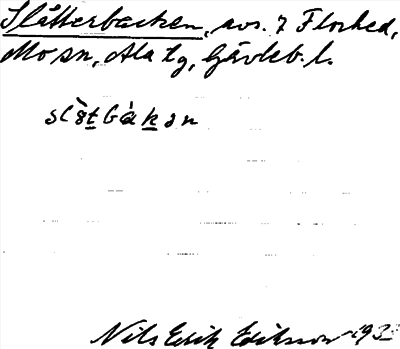 Slåtterbacken, avs. i Florhed,
Mo sn, Ala tg, Gävleb. l.
slåtbàkən
Nils Erik Eriksson